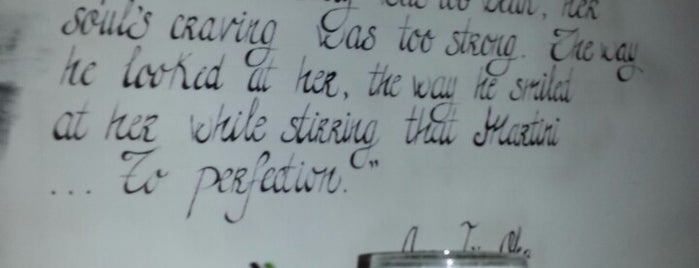 was too weak, her
soul's craving was too strong. The way
he looked at her, the way he smiled
at her while stirring that Martini
... To perfection."